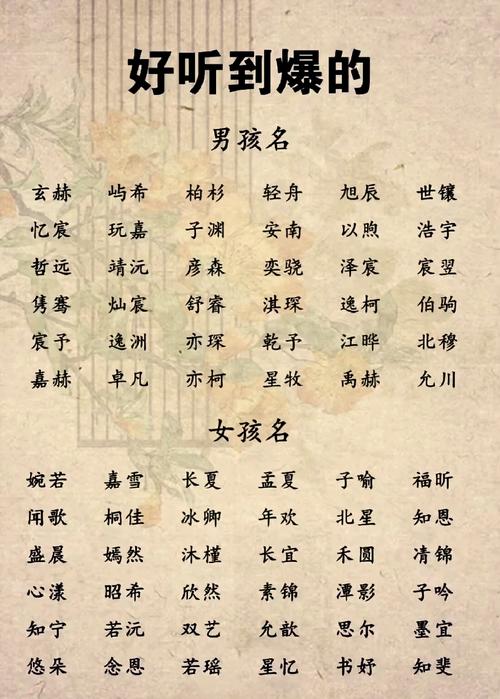 好听到爆的
男孩名
玄赫 屿希 柏杉 轻舟 旭辰 世镶
忆宸 玩嘉 子渊 安南 以煦 浩宇
哲远 靖沅 彦森 奕骁 泽宸 宸翌
隽骞 灿宸 舒睿 淇琛 逸柯 伯驹
宸予 逸洲 亦琛 乾予 江晔 北穆
嘉赫 卓凡 亦柯 星牧 禹赫 允川
女孩名
婉若 嘉雪 长夏 孟夏 子喻 福昕
闻歌 桐佳 冰卿 年欢 北星 知恩
盛晨 嫣然 沐槿 长宜 禾圆 凊锦
心漾 昭希 欣然 素锦 潭影 子吟
知宁 若沅 双艺 允歆 思尔 墨宜
悠朵 念恩 若瑶 星忆 书妤 知斐